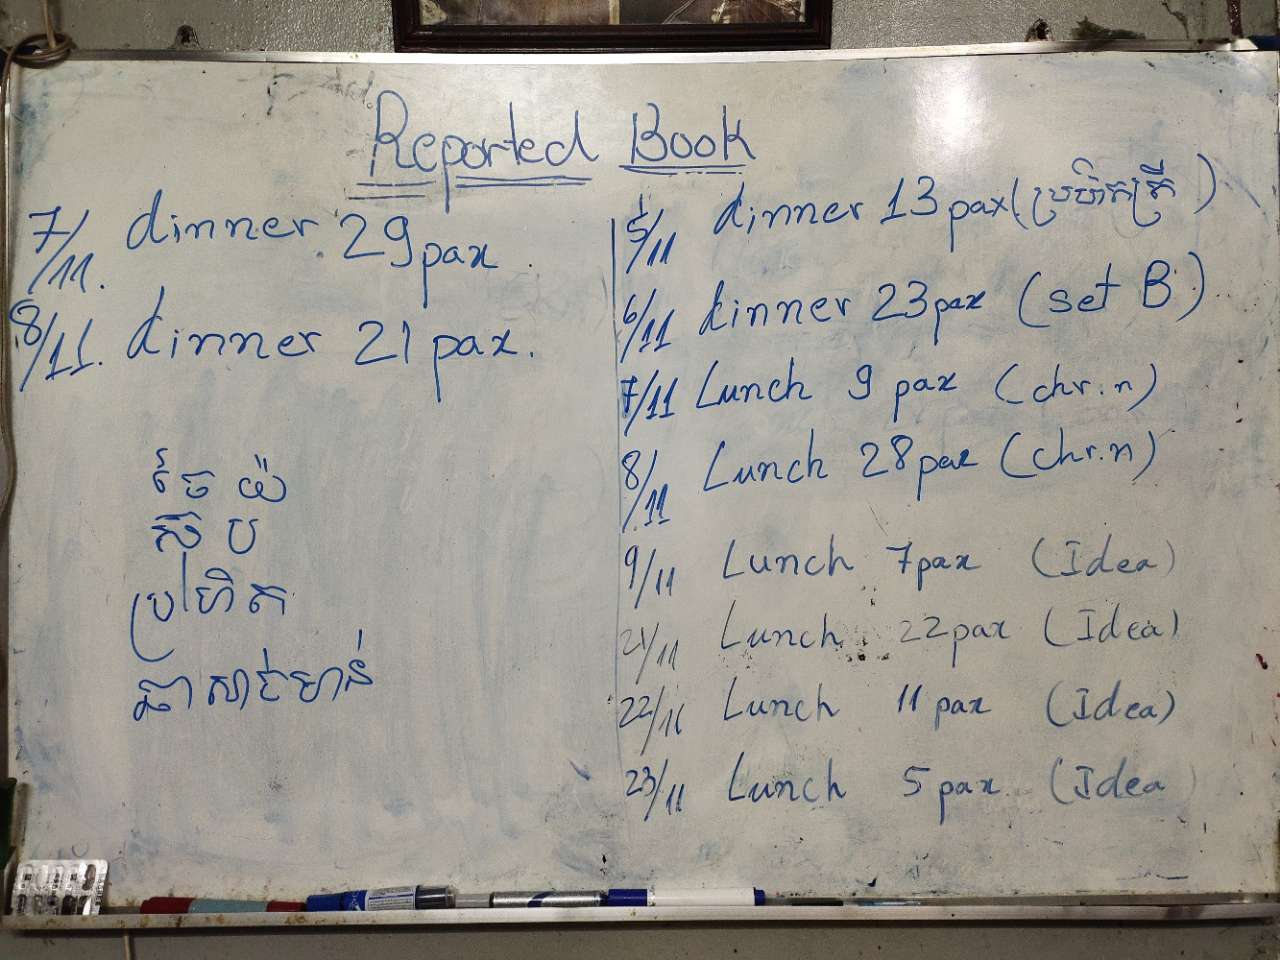 Reported Book
7/11. dinner 29pax.
8/11. dinner 21 pax.
ចៃ យ៉
ស៊ុប
ប្រហិត
ឆាសាច់មាន់
5/11 dinner 13pax (ប្រហិតត្រី)
6/11 dinner 23pax (set B)
7/11 Lunch 9 pax (chr.n)
8/11 Lunch 28pax (chr.n)
9/11 Lunch 7pax (Idea)
21/11 Lunch 22pax (Idea)
22/11 Lunch 11 pax (Idea)
23/11 Lunch 5 pax (Idea